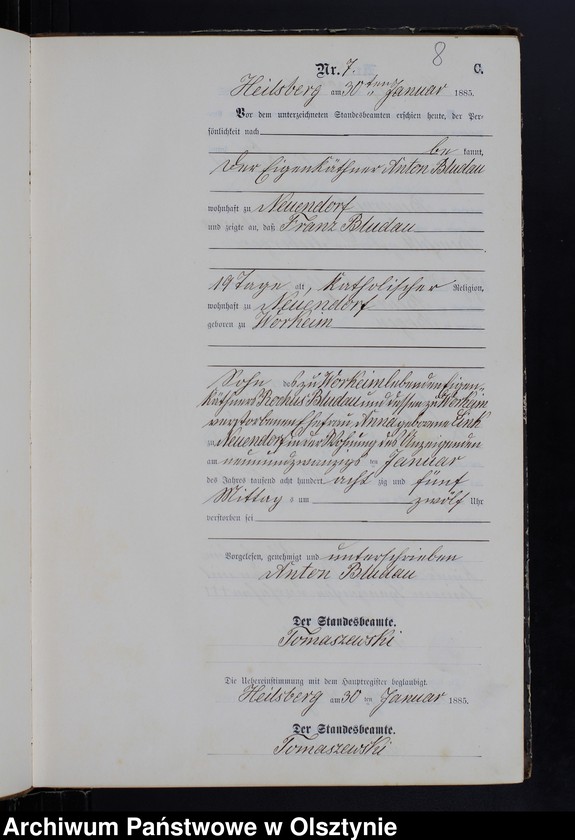 8
Nr. 7. C.
Heilsberg am 30 ten Januar 1885.
Vor dem unterzeichneten Standesbeamten erschien heute, der Per-
sönlichkeit nach
be kannt,
Der Eigenkäthner Anton Bludau
wohnhaft zu Neuendorf
und zeigte an, daß Franz Bludau
19 Tage alt, katholischer Religion,
wohnhaft zu Neuendorf
geboren zu Workeim
Sohn des zu Workeim lebenden Eigen-
käthners Rochus Bludau und dessen zu Workeim
verstorbenen Ehefrau Anna geborene Link
zu Neuendorf in der Wohnung des Anzeigenden
am neunundzwanzigs ten Januar
des Jahres tausend acht hundert acht zig und fünf
Mittag s um zwölf Uhr
verstorben sei
Vorgelesen, genehmigt und unterschrieben
Anton Bludau
Der Standesbeamte.
Tomaszewski
Die Uebereinstimmung mit dem Hauptregister beglaubigt.
Heilsberg am 30 ten Januar 1885.
Der Standesbeamte.
Tomaszewski
Archiwum Państwowe w Olsztynie